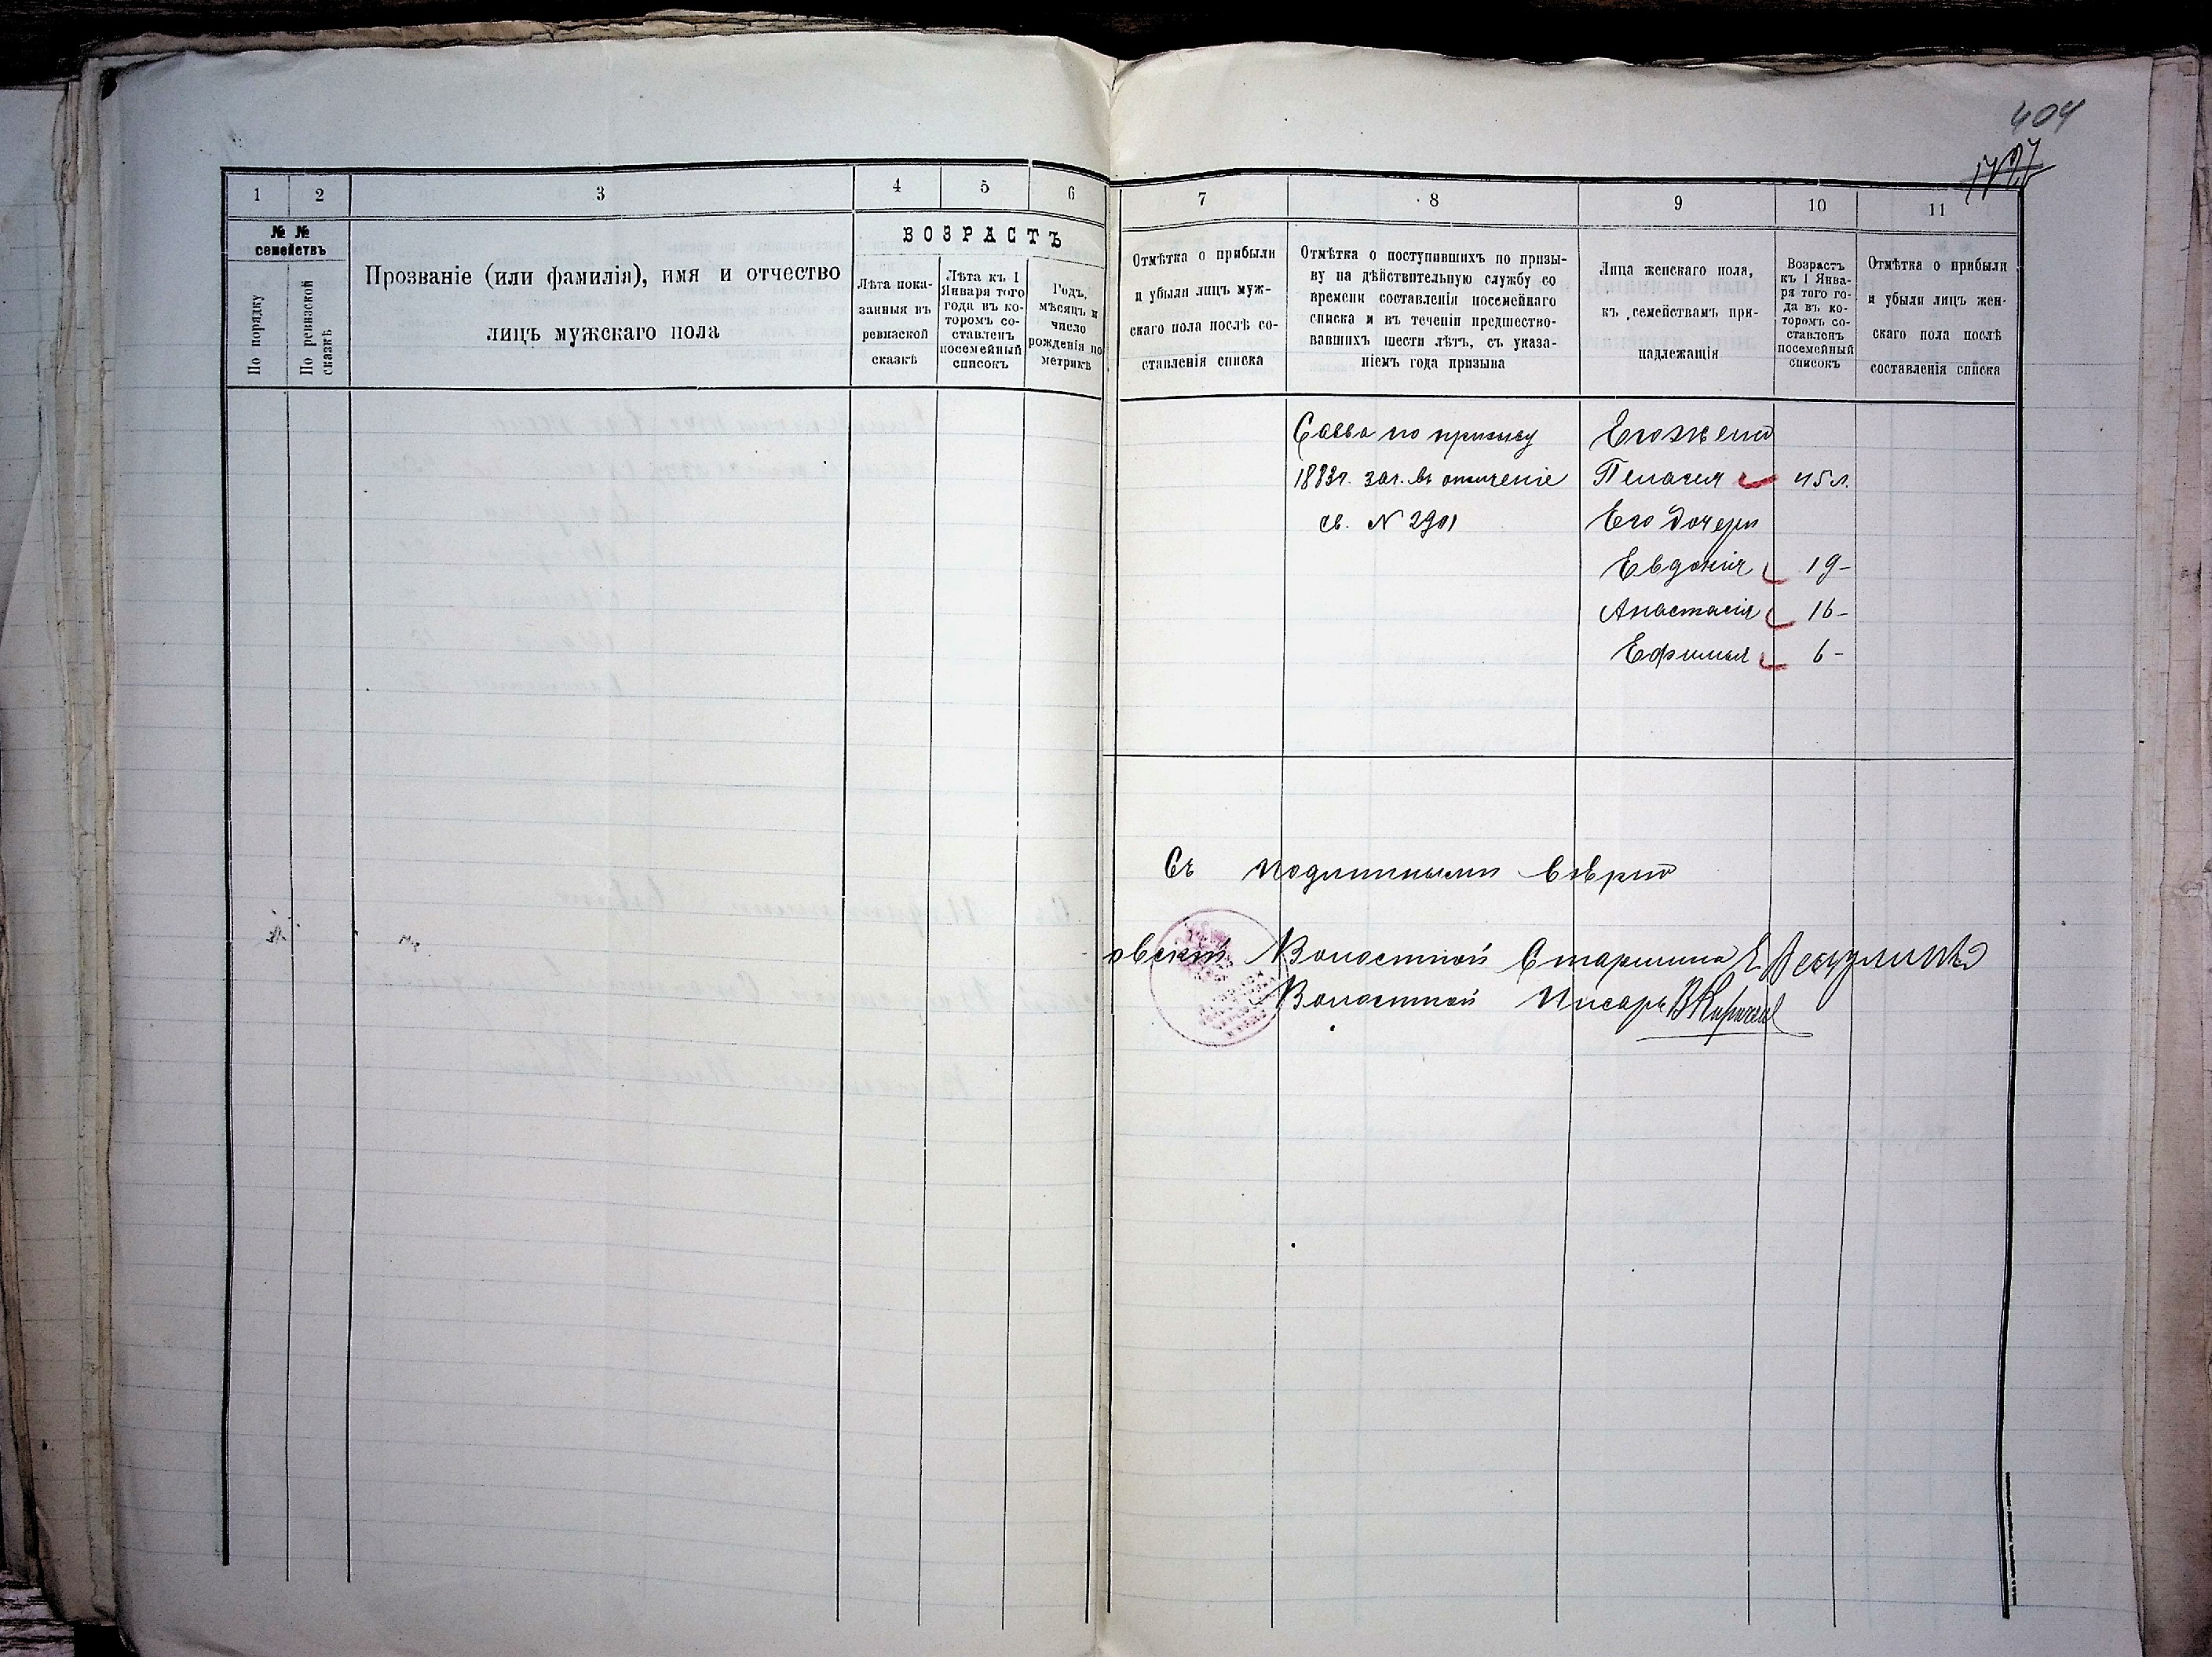 404
1 2 3 4 5 6
№ № семействъ
По порядку
По ревизской сказкѣ
Прозваніе (или фамилія), имя и отчество
лицъ мужскаго пола
ВОЗРАСТЪ
Лѣта пока-
занныя въ
ревизской
сказкѣ
Лѣта къ 1
Января того
года въ ко-
торомъ со-
ставленъ
посемейный
списокъ
Годъ,
мѣсяцъ и
число
рожденія по
метрикѣ
7 8 9 10 11
Отмѣтка о прибыли
и убыли лицъ муж-
скаго пола послѣ со-
ставленія списка
Отмѣтка о поступившихъ по призы-
ву на дѣйствительную службу со
времени составленія посемейнаго
списка и въ теченіи предшество-
вавшихъ шести лѣтъ, съ указа-
ніемъ года призыва
Лица женскаго пола,
къ семействамъ при-
надлежащія
Возрастъ
къ 1 Янва-
ря того го-
да въ ко-
торомъ со-
ставленъ
посемейный
списокъ
Отмѣтка о прибыли
и убыли лицъ жен-
скаго пола послѣ
составленія списка
Савва по призыву
1883г. зач. въ ополченіе
св. N 2901
Его жена
Пелагея 45 л.
Его дочери
Евдокія 19-
Анастасія 16-
Ефимья 6-
Съ подлиннымъ вѣрно
овскій Волостной Старшина
Волостной Писарь